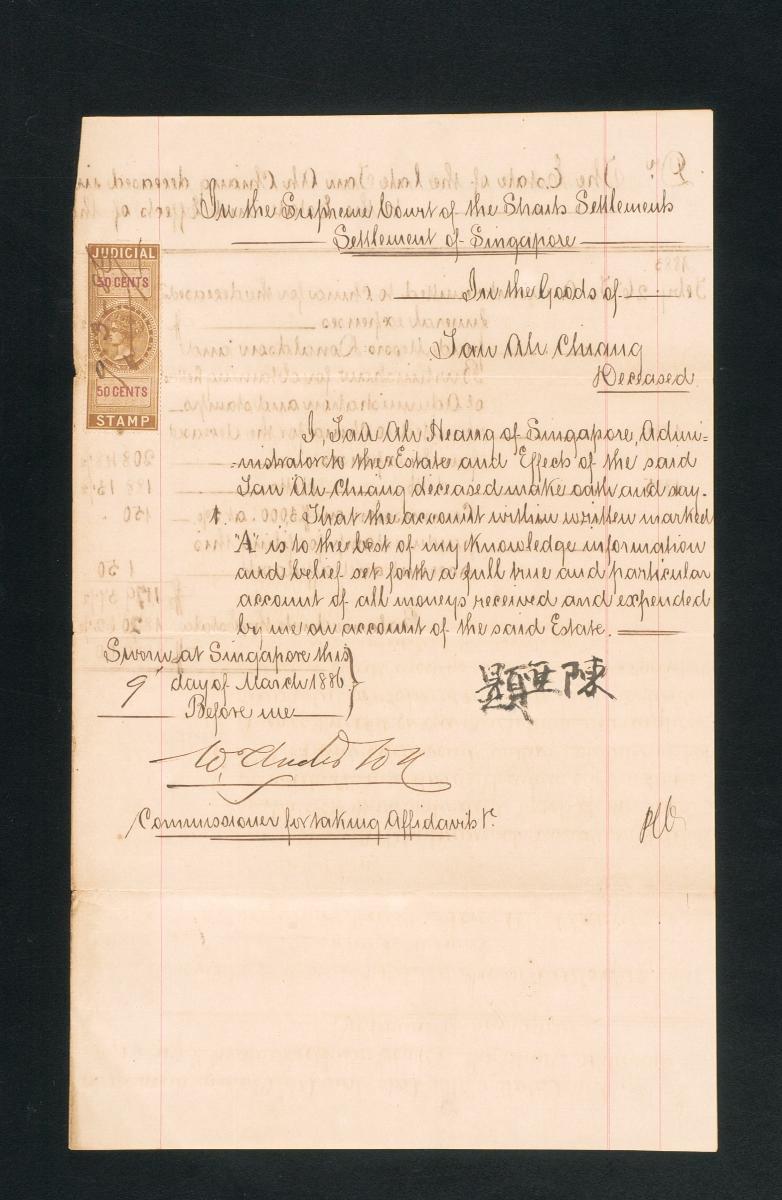 In the Supreme Court of the Straits Settlements
Settlement of Singapore
JUDICIAL
50 CENTS
50 CENTS
STAMP
In the Goods of
Tan Ah Chiang
Deceased
I, Tan Ah Heang of Singapore, Admi-
-nistrator to the Estate and Effects of the said
Tan Ah Chiang deceased make oath and say.
1. That the account within written marked
"A" is to the best of my knowledge information
and belief set forth a full true and particular
account of all moneys received and expended
by me on account of the said Estate.
Sworn at Singapore this
9 day of March 1886
Before me
陳亜
Commissioner for taking Affidavits &c.